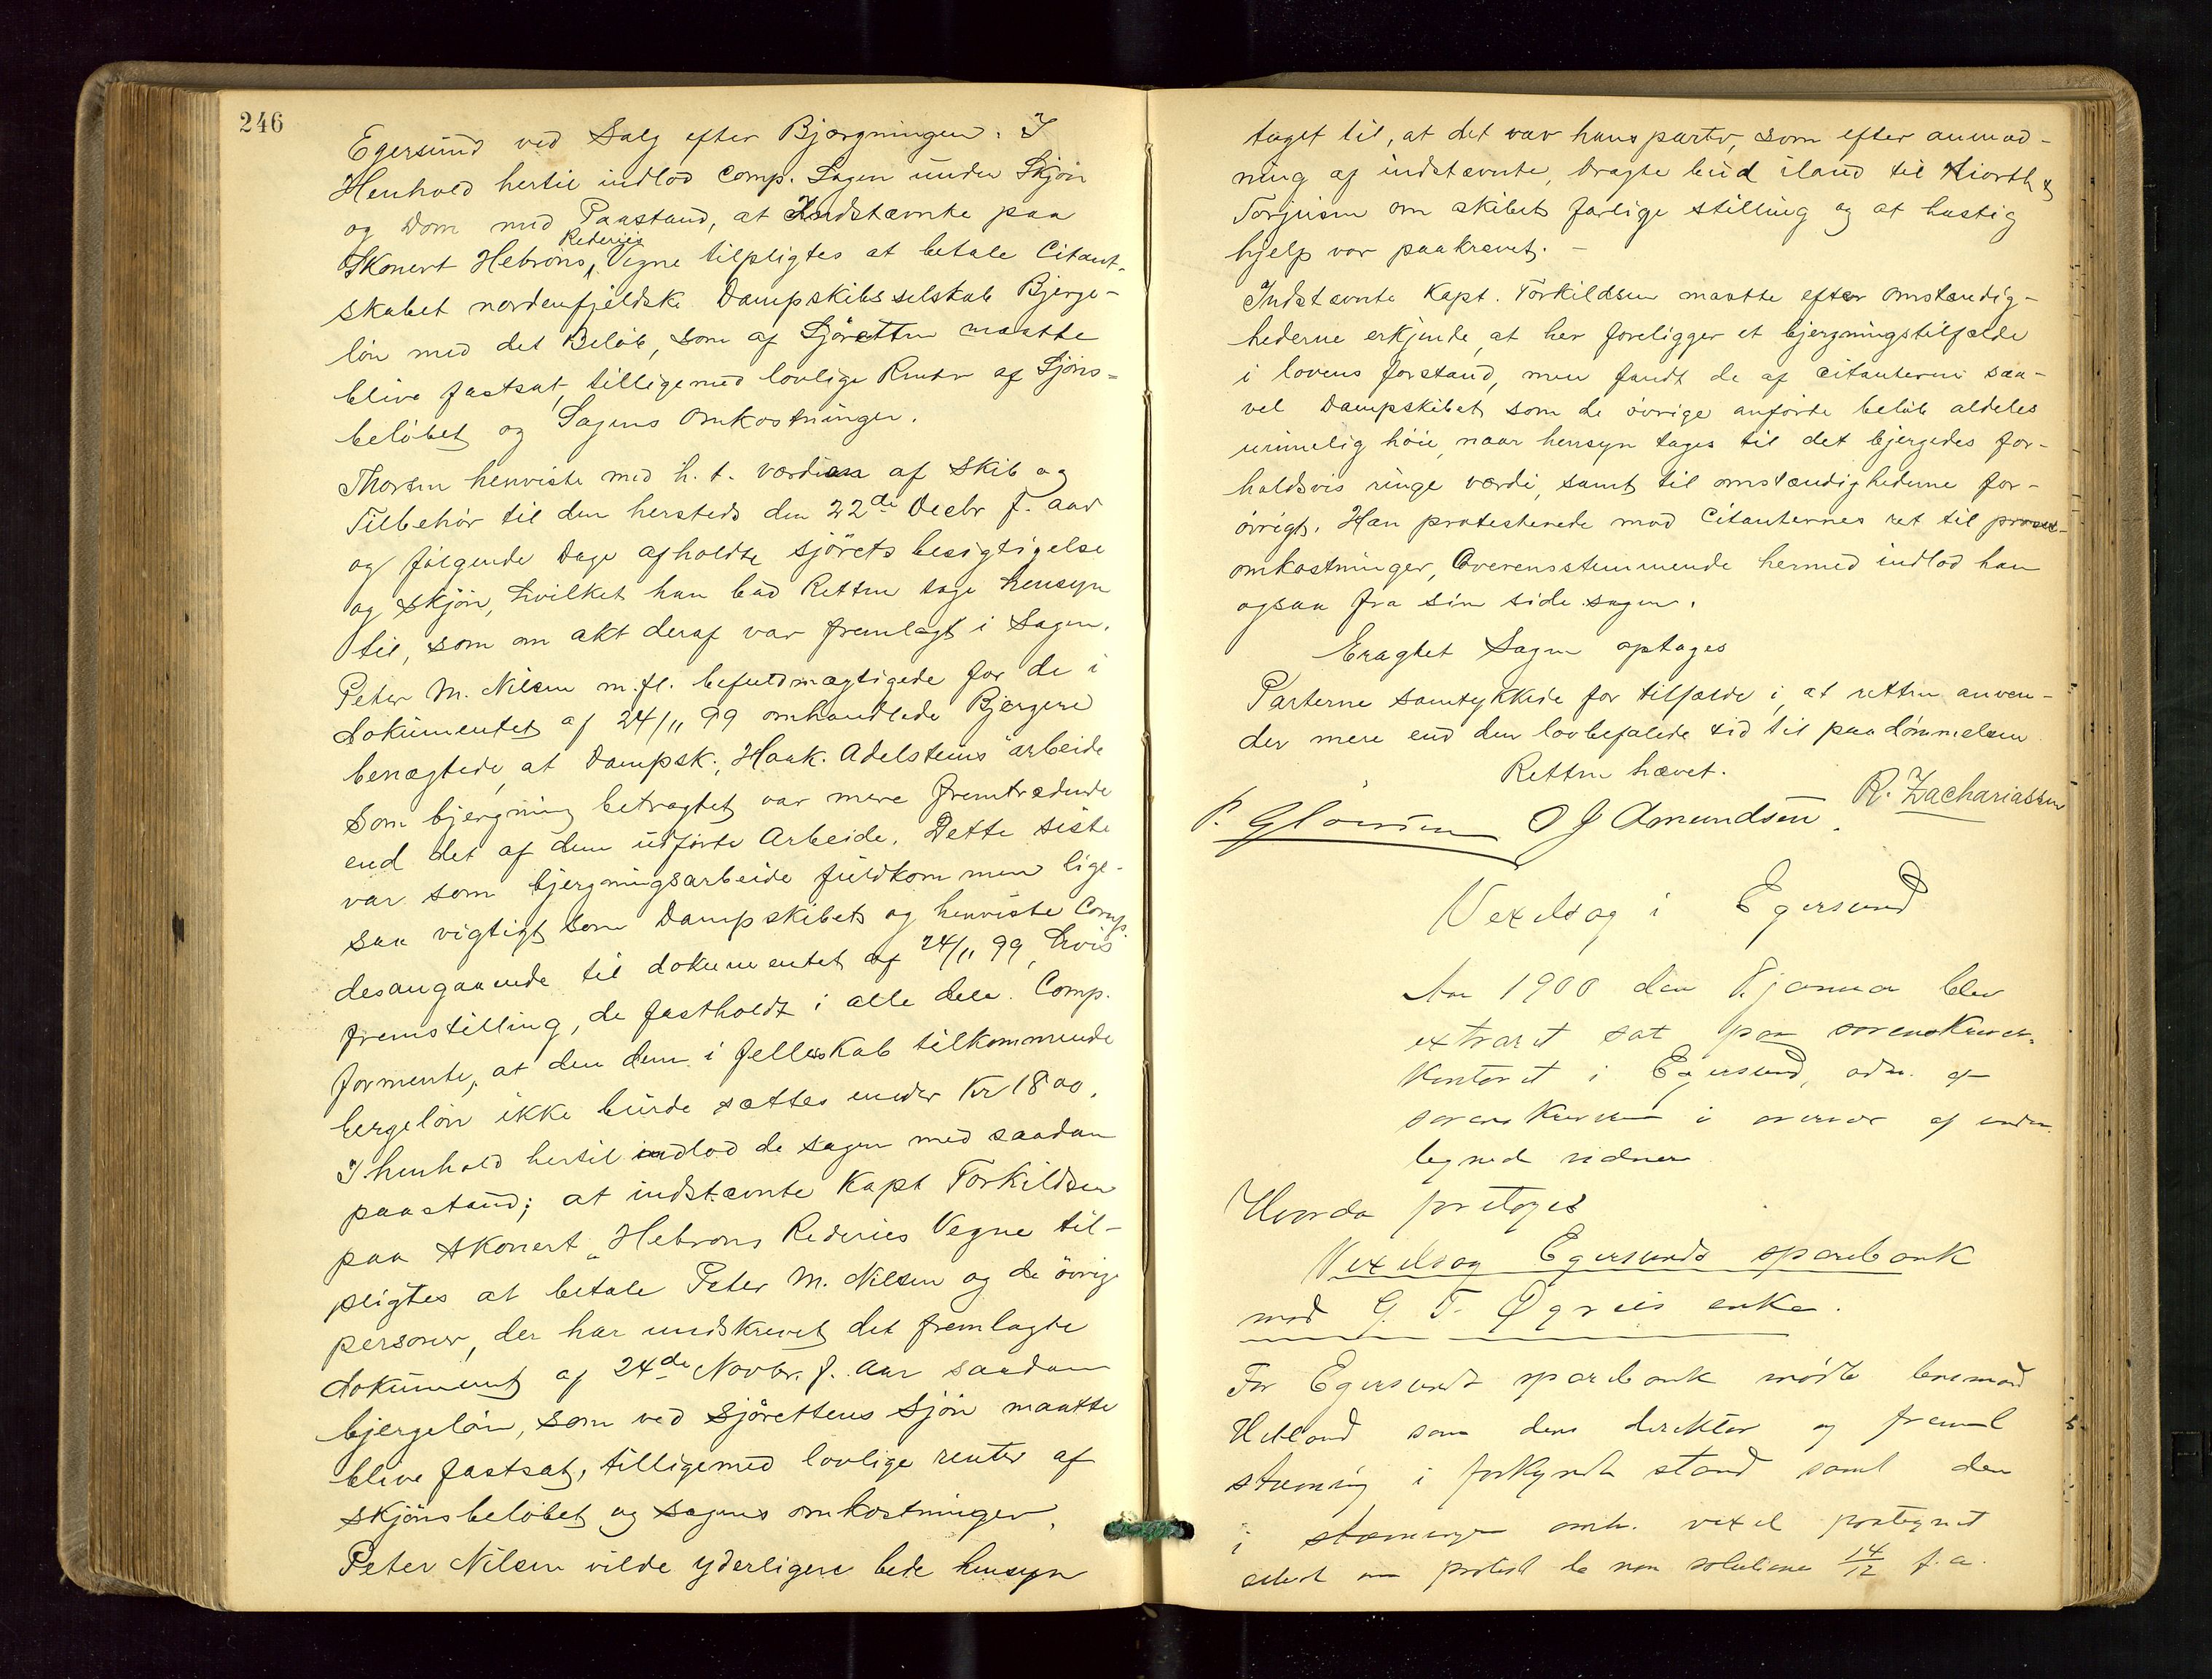 246
Egersund ved Salg efter Bjærgningen. I
Henhold hertil indlod Comp. Sagen under Skjøn
og Dom med Paastand, at Indstævnte paa
Rederies
Skonert Hebrons, Vegne tilpligtes at betale Citant-
skabet nordenfjeldske Dampskibsselskab Bjerge-
løn med det Beløb, som af Sjøretten maatte
blive fastsat, tilligemed lovlige Renter af Sjøns-
beløbet og Sagens Omkostninger.
Thorsen henviste med h. t. værdien af Skib og
Tilbehør til den hersteds den 22de Decbr f. aar
og følgende Dage afholdte sjørets besigtigelse
og skjøn, hvilket han bad Retten tage hensyn
til, som om akt deraf var fremlagt i Sagen.
Peter M. Nilsen m. fl. befuldmægtigede for de i
dokumentet af 24/11 99 omhandlede Bjergere
benægtede, at Dampsk. "Haak. Adelsteins" arbeide
som bjergning betragtet var mere fremtrædende
end det af dem udførte Arbeide. Dette siste
var som bjergningsarbeide fuldkommen lige-
saa vigtigt som Dampskibets og henviste Comp.
desangaaende til dokumentet af 24/11 99, hvis
fremstilling, de fastholdt i alle dele. Comp.
formente, at den dem i Fellesskab tilkommende
bergeløn ikke burde sættes under Kr 1800.
I henhold hertil indlod de sagen med saadan
paastand; at indstævnte Kapt Torkildsen
paa skonert "Hebrons Rederies Vegne til-
pligtes at betale Peter M. Nilsen og de øvrige
personer, der har undskrevet det fremlagte
dokument af 24de Novbr. f. Aar saadan
bjergeløn, som ved sjørettens sjøn maatte
blive fastsat, tilligemed lovlige renter af
skjønsbeløbet og sagens omkostninger.
Peter Nilsen vilde yderligere bede hensyn
taget til, at det var hans parti, som efter anmod-
ning af indstævnte, bragte bud iland til Hiorth &
Torjusen om skibets farlige stilling og at hastig
hjelp var paakrævet. -
Indstævnte Kapt. Torkildsen maatte efter omstændig-
hederne erkjende, at her foreligger et bjergningstilfælde
i lovens forstand, men fandt de af Citanterne saa-
vel Dampskibet som de øvrige anførte beløb aldeles
urimelig høie, naar hensyn tages til det bjergedes for-
holdsvis ringe værdi, samt til omstændighederne for-
øvrigt. Han protesterede mod Citanternes ret til proces-
omkostninger, Overensstemmende hermed indlod han
ogsaa fra sin side sagen.
Eragtet Sagen optages
Parterne samtykkede for tilfælde i, at retten anven-
der mere end den lovbefalede tid til paadømmelsen
Retten hævet.
O J Amundsen. R. Zachariassen
Vexelsag i Egersund
Aar 1900 den januar blev
extraret sat paa sorenskriver-
kontoret i Egersund, adm. af
sorenskriveren i overvær af under-
tegnede vidner
Hvorda foretoges
Vexelsag Egersunds sparebank
mod G. T. enke.
For Egersunds sparebank mødte lensmand
Hetland som dens direktør og freml
stævning i forkyndt stand samt den
i stævningen omh. vexel protegnet
attest om protest de non solutione 14/12 f. a.